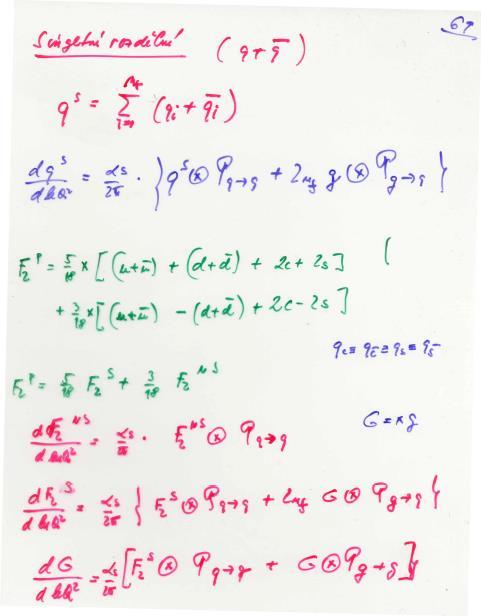 69
Singletní rozdělní (q+q̄)
q^S = Σ_{i=1}^{n_f} (q_i + q̄_i)
dq^S/dlnQ² = α_s/2π · { q^S ⊗ P_{q→q} + 2n_f g ⊗ P_{g→q} }
F_2^P = 5/18 x [(u+ū) + (d+d̄) + 2c + 2s] (
+ 3/18 x [(u+ū) − (d+d̄) + 2c − 2s]
q_c ≡ q_c̄ ≅ q_s ≡ q_s̄
F_2^P = 5/18 F_2^S + 3/18 F_2^{NS}
G = xg
dF_2^{NS}/dlnQ² = α_s/2π · F_2^{NS} ⊗ P_{q→q}
dF_2^S/dlnQ² = α_s/2π { F_2^S ⊗ P_{q→q} + 2n_f G ⊗ P_{g→q} }
dG/dlnQ² = α_s/2π [ F_2^S ⊗ P_{q→g} + G ⊗ P_{g→g} ]